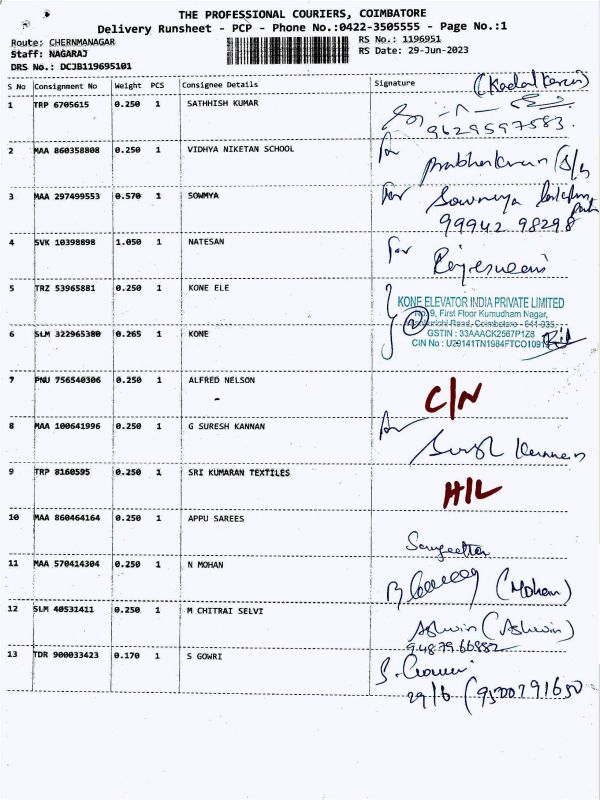 THE PROFESSIONAL COURIERS, COIMBATORE
Delivery Runsheet - PCP - Phone No.:0422-3505555 - Page No.:1
Route: CHERNMANAGAR RS No.: 1196951
Staff: NAGARAJ RS Date: 29-Jun-2023
DRS No.: DCJB119695101
S No Consignment No Weight PCS Consignee Details Signature
(Kadalkarai)
1 TRP 6705615 0.250 1 SATHHISH KUMAR
9629597583.
2 MAA 860358808 0.250 1 VIDHYA NIKETAN SCHOOL
for Prabhakaran (S/G
3 MAA 297499553 0.570 1 SOWMYA
for Sowmya
99942 98298
4 SVK 10398898 1.050 1 NATESAN
for Rajeswari
5 TRZ 53965881 0.250 1 KONE ELE
KONE ELEVATOR INDIA PRIVATE LIMITED
No.9, First Floor Kumudham Nagar,
2 Road, Coimbatore - 641 035.
6 SLM 322965380 0.265 1 KONE
GSTIN : 33AAACK2567P1Z8
CIN No : U29141TN1984FTCO10913
7 PNU 756540306 0.250 1 ALFRED NELSON
-
C/N
8 MAA 100641996 0.250 1 G SURESH KANNAN
for Suresh Kannan
9 TRP 8160595 0.250 1 SRI KUMARAN TEXTILES
H/L
10 MAA 860464164 0.250 1 APPU SAREES
Sangeetha
11 MAA 570414304 0.250 1 N MOHAN
(Mohan)
12 SLM 40531411 0.250 1 M CHITRAI SELVI
Ashwin (Ashwin)
9487966882
13 TDR 900033423 0.170 1 S GOWRI
S. Gowri
29/6 (9500791650